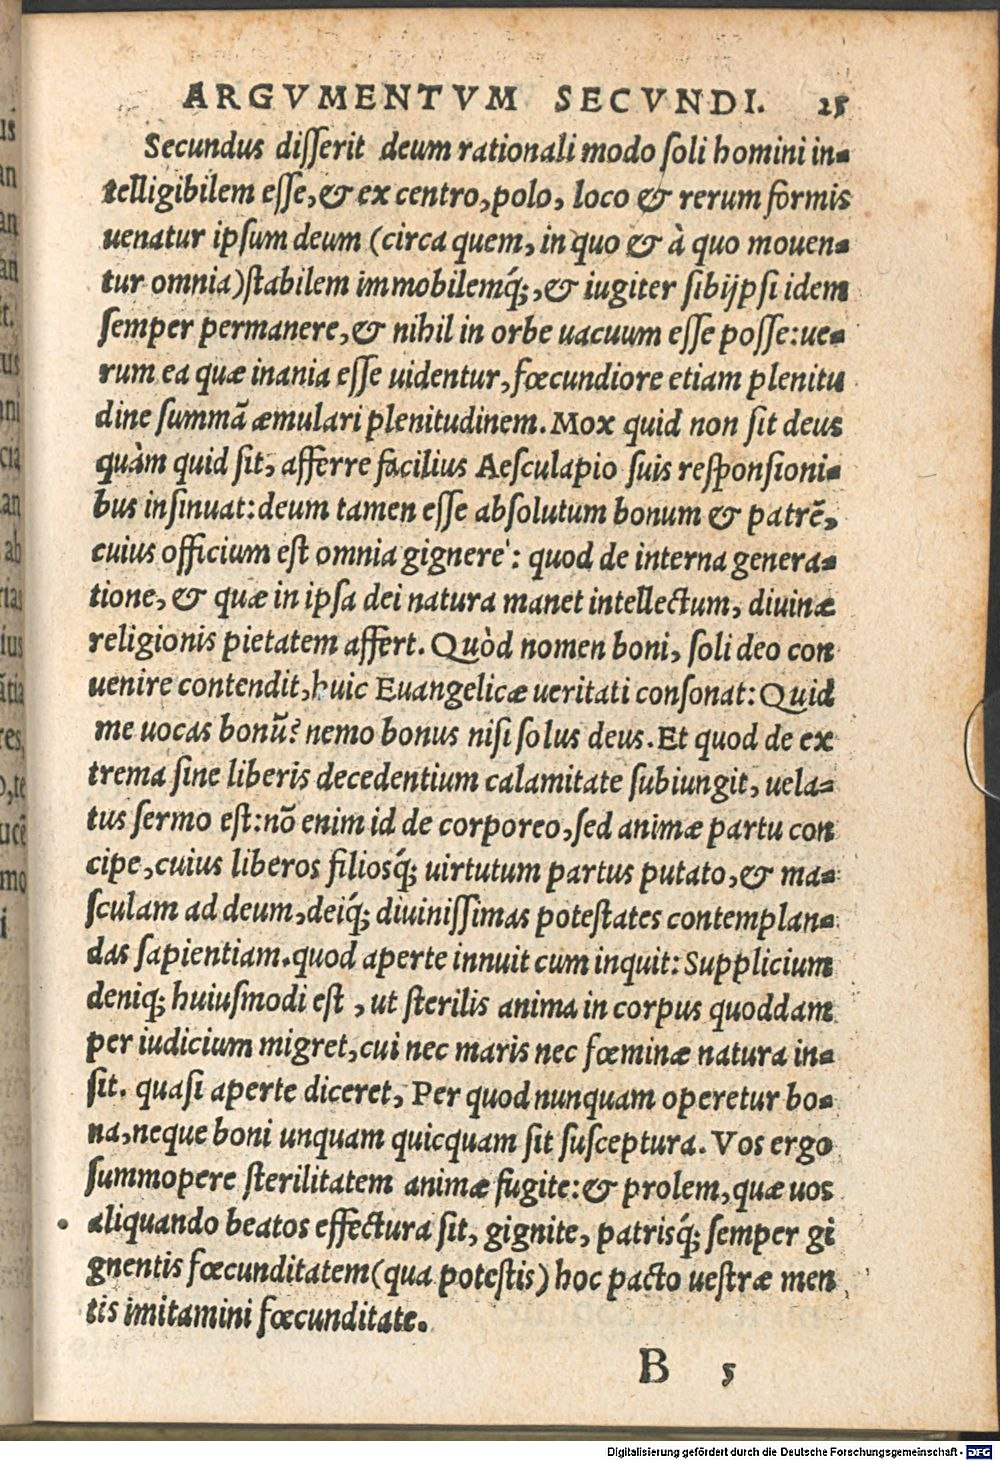 ARGVMENTVM SECVNDI. 25
Secundus disserit deum rationali modo soli homini in-
telligibilem esse, & ex centro, polo, loco & rerum formis
uenatur ipsum deum (circa quem, in quo & à quo mouen-
tur omnia) stabilem immobilemq́;, & iugiter sibijpsi idem
semper permanere, & nihil in orbe uacuum esse posse: ue-
rum ea quæ inania esse uidentur, fœcundiore etiam plenitu
dine summā æmulari plenitudinem. Mox quid non sit deus
quàm quid sit, afferre facilius Aesculapio suis responsioni-
bus insinuat: deum tamen esse absolutum bonum & patrē,
cuius officium est omnia gignere: quod de interna genera-
tione, & quæ in ipsa dei natura manet intellectum, diuinæ
religionis pietatem affert. Quòd nomen boni, soli deo con
uenire contendit, huic Euangelicæ ueritati consonat: Quid
me uocas bonū? nemo bonus nisi solus deus. Et quod de ex
trema sine liberis decedentium calamitate subiungit, uela-
tus sermo est: nō enim id de corporeo, sed animæ partu con
cipe, cuius liberos filiosq́; uirtutum partus putato, & ma-
sculam ad deum, deiq́; diuinissimas potestates contemplan-
das sapientiam. quod aperte innuit cum inquit: Supplicium
deniq; huiusmodi est, ut sterilis anima in corpus quoddam
per iudicium migret, cui nec maris nec fœminæ natura in-
sit. quasi aperte diceret, Per quod nunquam operetur bo-
na, neque boni unquam quicquam sit susceptura. Vos ergo
summopere sterilitatem animæ fugite: & prolem, quæ uos
aliquando beatos effectura sit, gignite, patrisq́; semper gi
gnentis fœcunditatem (qua potestis) hoc pacto uestræ men
tis imitamini fœcunditate.
B 5
Digitalisierung gefördert durch die Deutsche Forschungsgemeinschaft - DFG